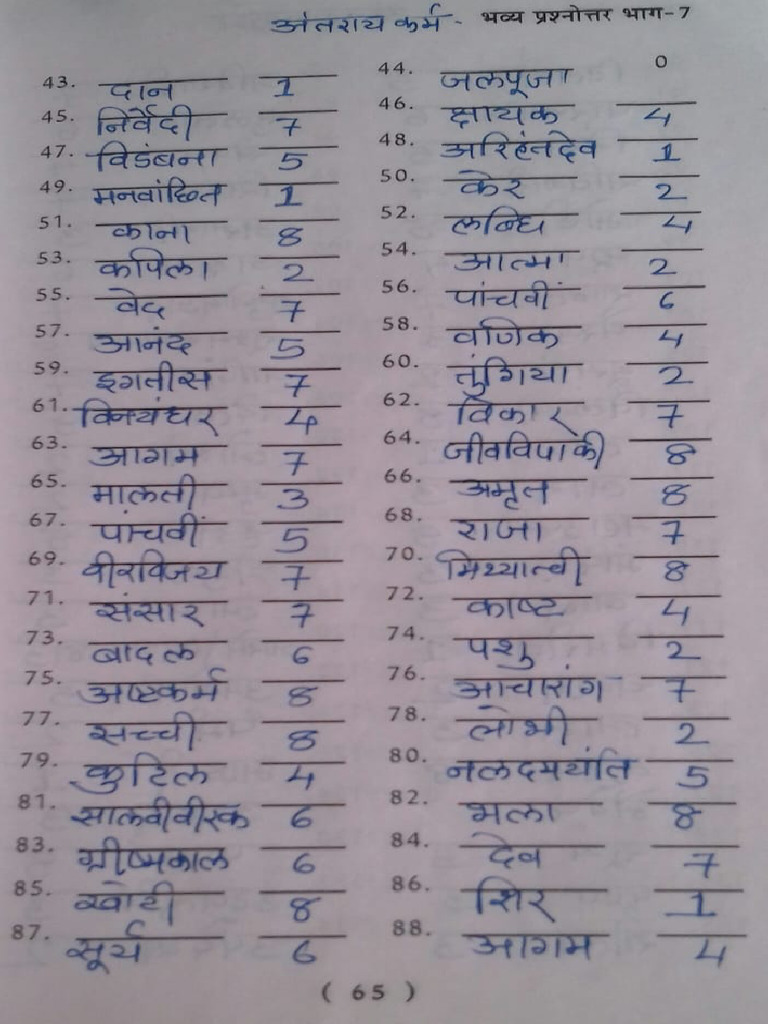 अंतराय कर्म - भव्य प्रश्नोत्तर भाग-7
43. दान 1 44. जलपूजा 0
45. निर्वेदी 7 46. क्षायक 4
47. विडंबना 5 48. अरिहंतदेव 1
49. मनवांछित 1 50. केर 2
51. काना 8 52. लब्धि 4
53. कपिला 2 54. आत्मा 2
55. वेद 7 56. पांचवीं 6
57. आनंद 5 58. वणिक 4
59. इगतीस 7 60. तुंगिया 2
61. विनयंधर 4 62. विकार 7
63. आगम 7 64. जीवविपाकी 8
65. मालती 3 66. अमृत 8
67. पांचवीं 5 68. राजा 7
69. वीरविजय 7 70. मिथ्यात्वी 8
71. संसार 7 72. काष्ट 4
73. बादल 6 74. पशु 2
75. अष्टकर्म 8 76. आचारांग 7
77. सच्ची 8 78. लोभी 2
79. कुटिल 4 80. नलदमयंति 5
81. सालवीवीरक 6 82. भला 8
83. ग्रीष्मकाल 6 84. देव 7
85. खोटी 8 86. शिर 1
87. सूर्य 6 88. आगम 4
( 65 )